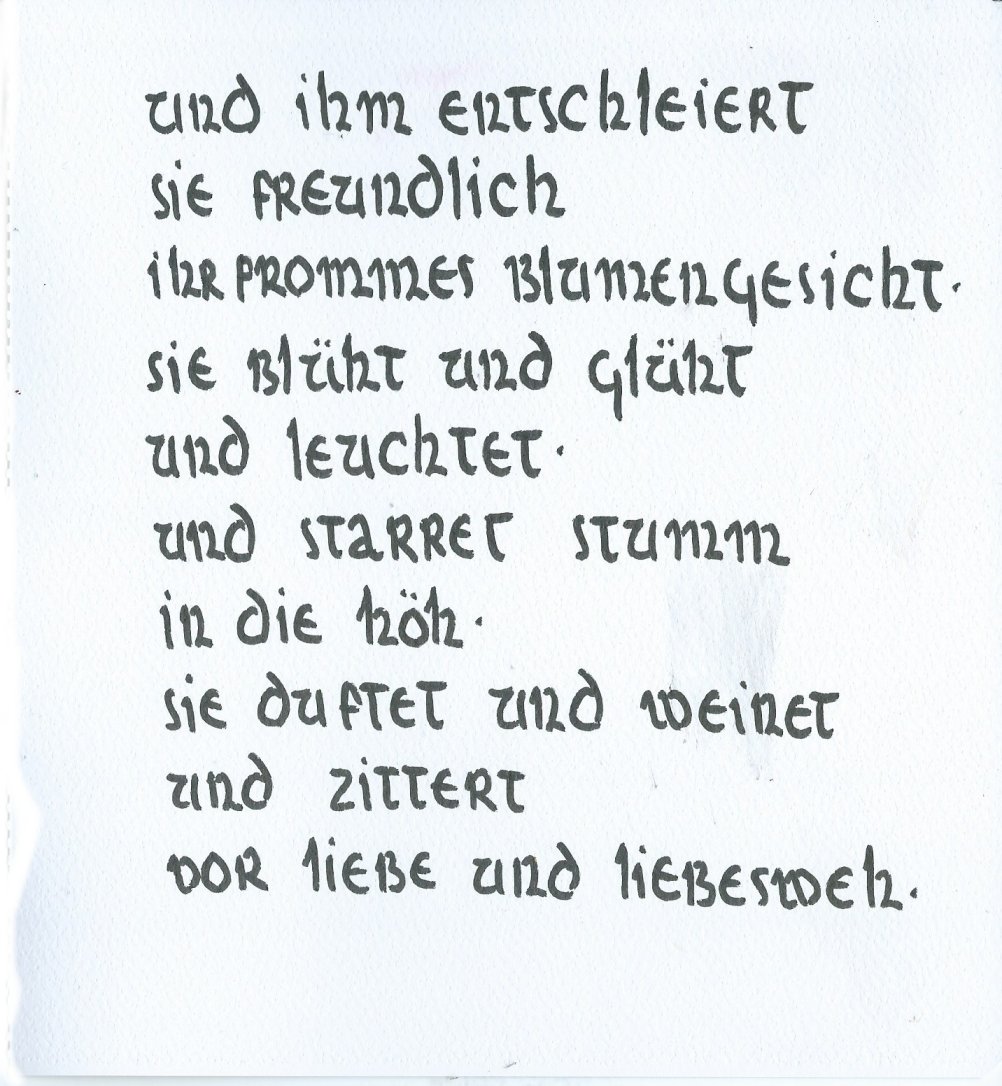 und ihm entschleiert
sie freundlich
ihr prommes blumengesicht.
sie blüht und glüht
und leuchtet.
und starret stumm
in die höh.
sie duftet und weinet
und zittert
vor liebe und liebesweh.